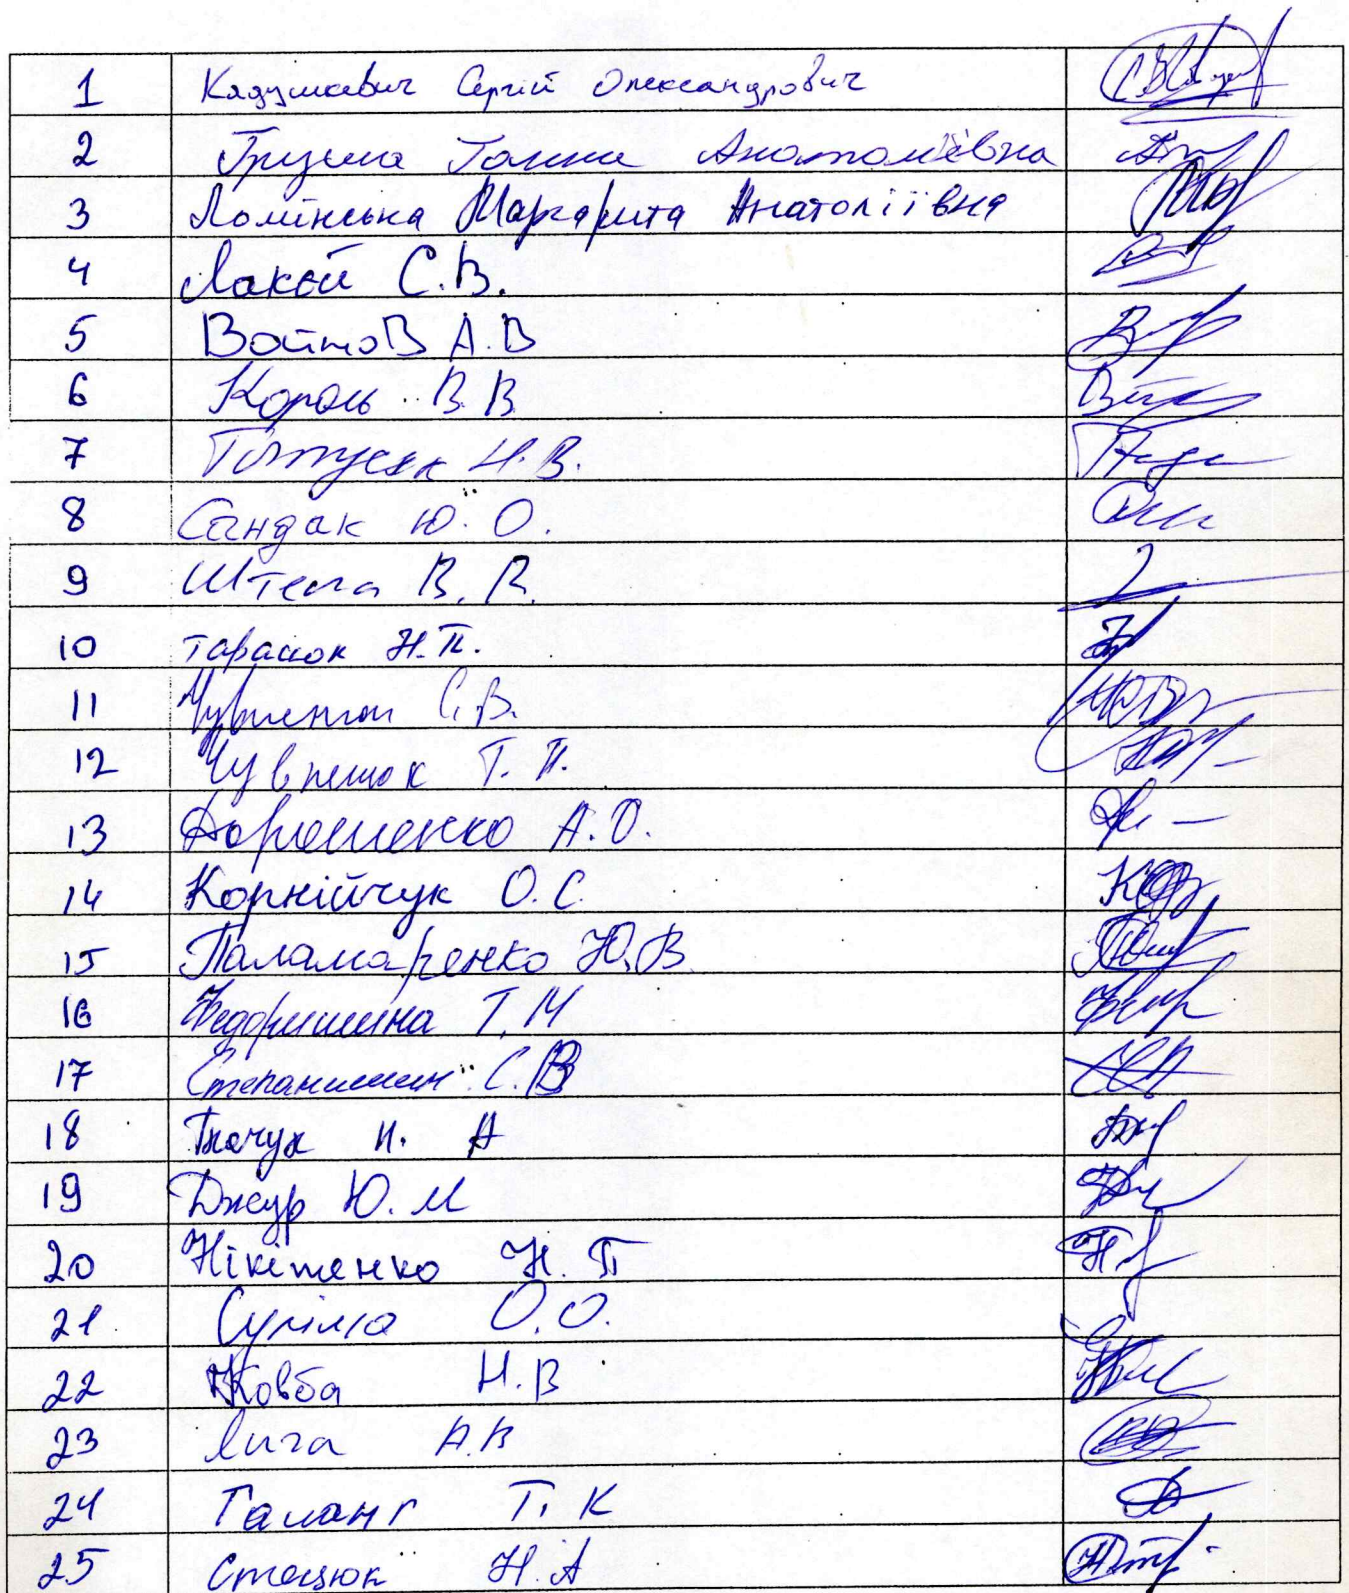 1 Кадушкевич Сергій Олександрович
2 Анатоліївна
3 Ломінська Маргарита Анатоліївна
4 Лакей С.В.
5 Войтов А.В
6 Король В.В
7 Н.В.
8 Сандак Ю.О.
9 Штепа В.В.
10 Тарасюк Н.П.
11 С.В.
12 Т.П.
13 Дорошенко А.О.
14 Корнійчук О.С.
15 Паламаренко Ю.В
16 Федоришина Т.М
17 Степанишин С.В
18 Ткачук Н. А
19 Джур Ю.М
20 Нікітенко Н.П
21 Суліма О.О.
22 Жовба Н.В
23 А.В
24 Т.К
25 Стецюк Н.А